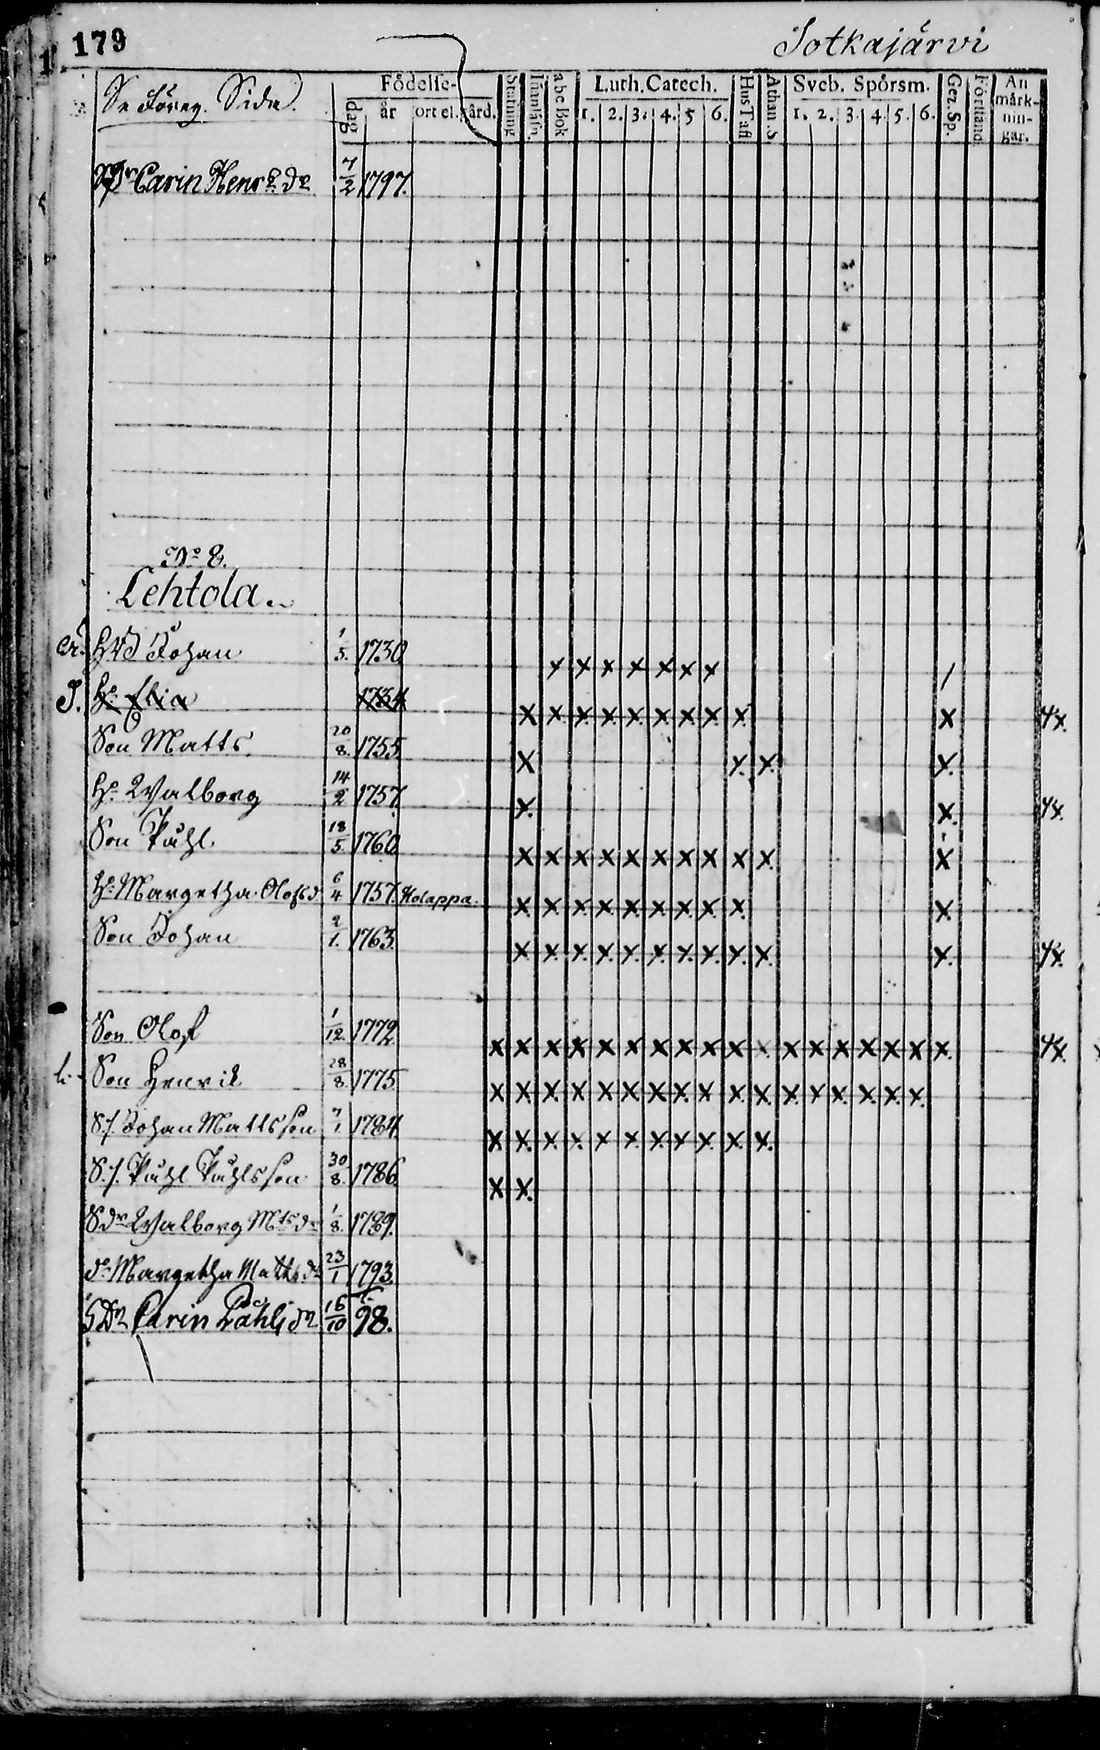 179 Sotkajärvi
Se Föreg. Sida. dag Födelse- år ort el. gård. Stafning Innanläsn. abc Bok Luth. Catech. 1. 2. 3. 4. 5 6. Hus Tafl Athan. S Sveb. Spörsm. 1. 2. 3. 4. 5. 6. Gez. Sp. Förstånd. An märk- nin- gar.
Carin Henr. dr 7/2 1797.
No 8.
Lehtola.
Johan 1/5. 1730 x x x x x x x /
J. H. Elin 1734 x x x x x x x x x x 4x.
Son Matts 20/8. 1755. x x. x. x.
H. Walborg 14/2 1757. x. x. 4x.
Son Påhl 18/5. 1760 x x x x x x x x x x. x
H. Margetha Olofsd 6/4 1757. Holappa x x x x x x x x x. x
Son Johan 2/1. 1763. x x x. x x. x. x. x. x. x. x. 4x.
Son Olof 1/12. 1772 x x x x x x x x x x x x x x x x x x. 4x.
Son Henrik 28/8. 1775. x x x x x x x x x x x. x x x. x x x.
S.S. Johan Mattsson 7/1 1784. x x. x x x x x x x x x.
S.S. Påhl Påhlsson 30/8. 1786 x x.
Sdr Walborg Mtsdr 1/8. 1789.
dr Margetha Mattsdr 23/1 1793
SDr Carin Påhlsdr 16/10 98.